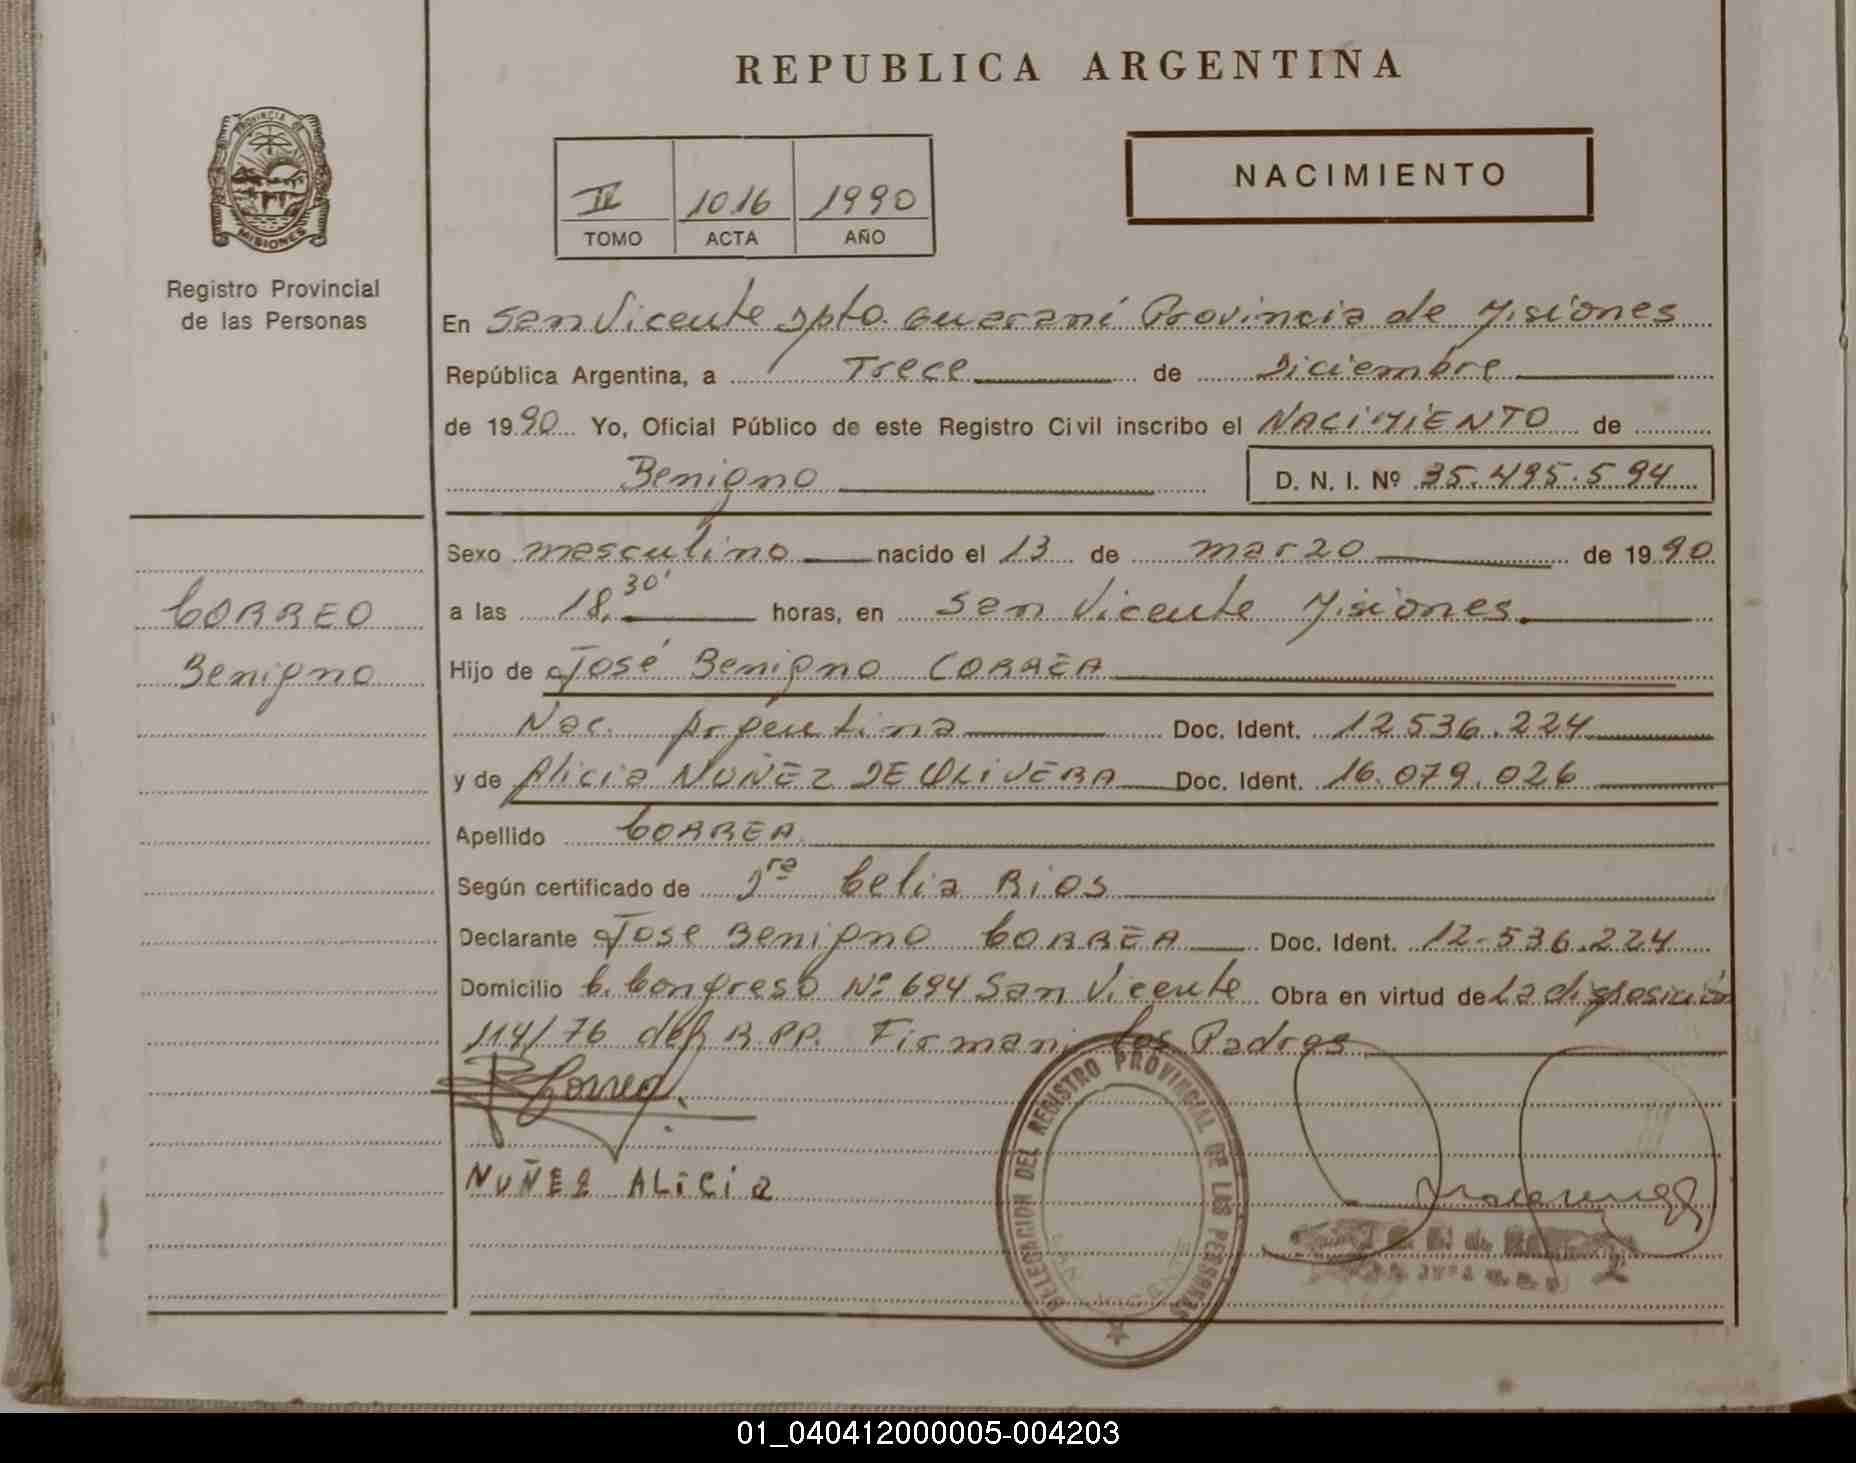 REPUBLICA ARGENTINA
PROVINCIA DE
MISIONES
Registro Provincial
de las Personas
IV 1016 1990
TOMO ACTA AÑO
NACIMIENTO
En San Vicente Dpto. Guaraní Provincia de Misiones
República Argentina, a Trece de Diciembre
de 1990 Yo, Oficial Público de este Registro Civil inscribo el NACIMIENTO de
Benigno D. N. I. Nº 35.495.594
Sexo masculino nacido el 13 de marzo de 1990
a las 18,30' horas, en San Vicente Misiones.
Hijo de José Benigno CORREA
Nac. Argentina Doc. Ident. 12536.224
y de Alicia NUÑEZ DE OLIVERA Doc. Ident. 16.079.026
Apellido CORREA
Según certificado de Celia Rios
Declarante Jose Benigno CORREA Doc. Ident. 12-536.224
Domicilio b. Congreso Nº 694 San Vicente Obra en virtud de La disposición
114/76 del R.PP. Firman los Padres
CORREO
Benigno
Correa
NUÑEZ ALiCia
DELEGACION DEL REGISTRO PROVINCIAL DE LAS PERSONAS
SAN VICENTE
01_040412000005-004203